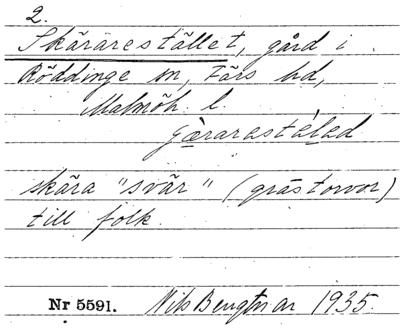 2.
Skärarestället, gård i
Röddinge sn, Färs hd,
Malmöh. l.
skära "svär" (grästorvor)
till folk
Nr 5591. Nils Bengtsson 1935.